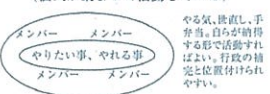 メンバー　メンバー
やりたい事、やれる事
メンバー　メンバー
やる気、後直し、手
弁当。自らが納得
する形で活動すれ
ばよい。行政の補
完と位置付けられ
やすい。